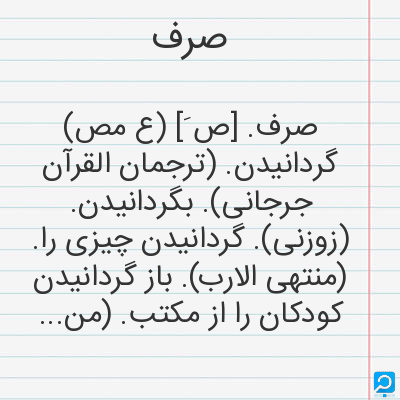 صرف
صرف. [ص َ] (ع مص)
گردانیدن. (ترجمان القرآن
جرجانی). بگردانیدن.
(زوزنی). گردانیدن چیزی را.
(منتهی الارب). باز گردانیدن
کودکان را از مکتب. (من...